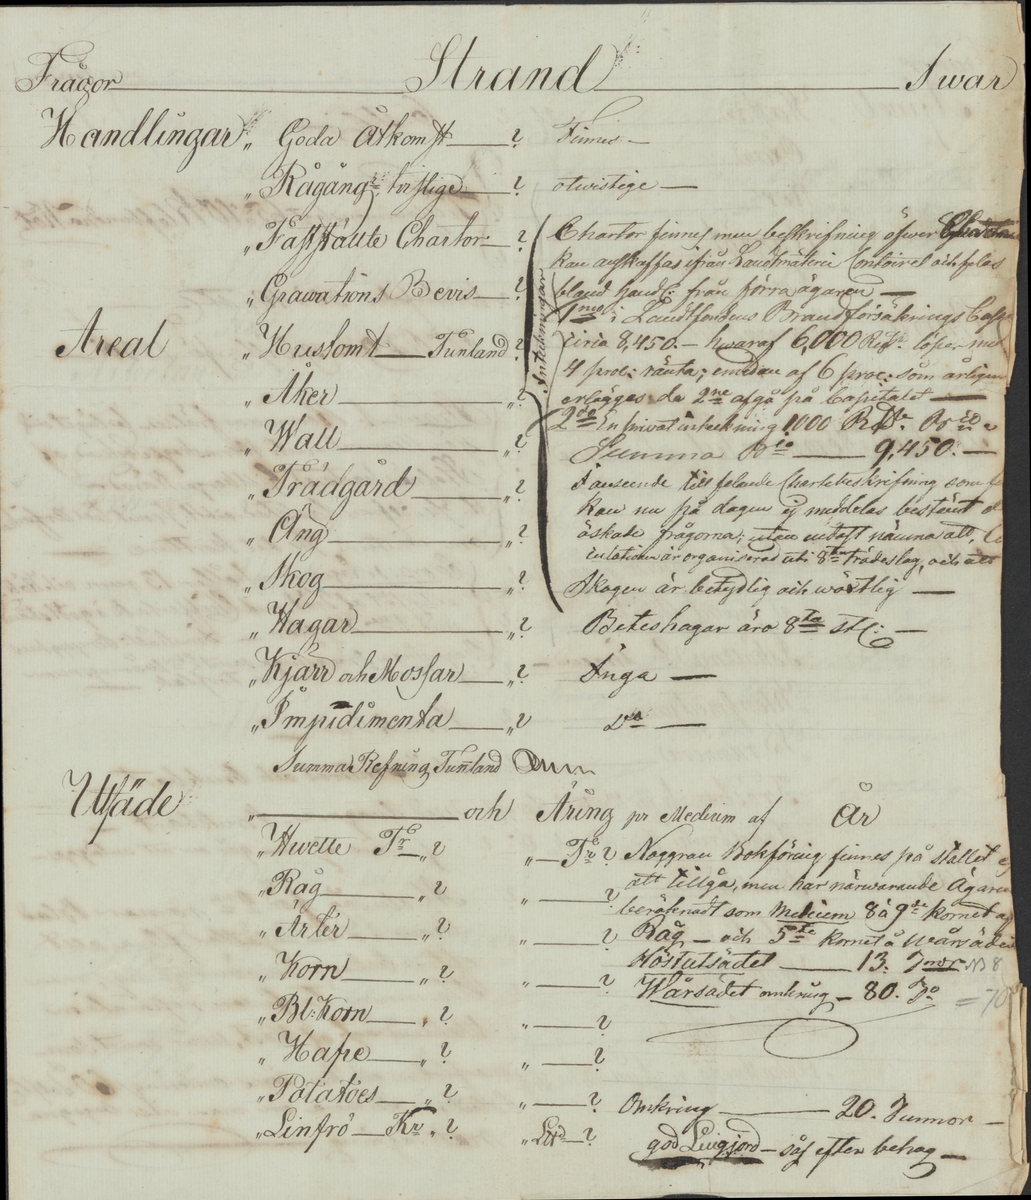 Frågor Strand Swar
Handlingar „ Goda Åtkomst ? Finnes —
„ Rågång: twistige ? otwistige —
„ Fastställte Chartor ? Chartor finnes men beskrifning öfwer
kan anskaffas ifrån Landtmäteri Contoiret och felas
„ Grawations Bevis ? bland handl: från förra ägaren —
Inteckningar
1mo i Landtfondens Brandförsäkrings
Areal „ Hustomt Tunland ? circa 8,450. — hwaraf 6,000 löper med
4 proc: ränta; emedan af 6 proc: som årligen
„ Åker „ ? erlägges de 2ne afgå på Capitalet —
2do En privat inteckning 1000
„ Wall „ ? Summa 9,450. —
„ Trädgård „ ? I anseende till felande Chartebeskrifning som
kan nu på dagen ej meddelas bestämt
„ Äng „ ? öskade frågorna, utan endast nämna att,
culationen är organiserad uti 8ta trädeslag, och att
„ Skog „ ? Skogen är betydlig och wäxtlig —
„ Hagar „ ? Beteshagar äro 8ta st: —
„ Kjärr och Mossar „ ? Inga —
„ Impidimenta „ ? Do —
Summa Refning Tunland
Utsäde „ och Äring pr Medium af År
„ Hwette Tr „ ? „ Tr ? Noggran Bokföring finnes på stället ej
„ Råg „ ? „ ? att tillgå, men har närwarande Ägaren
beräknadt som Medium 8 à 9de kornet a
„ Ärter „ ? „ ? Råg — och 5te kornet å wårsäde
„ Korn „ ? „ ? Höstutsädet 13. Tnor N 8
Wårsädet omkring — 80. Do = 70
„ Bl: Korn „ ? „ ?
„ Hafre „ ? „ ?
„ Potatoes „ ? „ ? Omkring 20. Tunnor —
„ Linfrö Kr „ ? „ Ltt ? god Lingjord — sås efter behag —